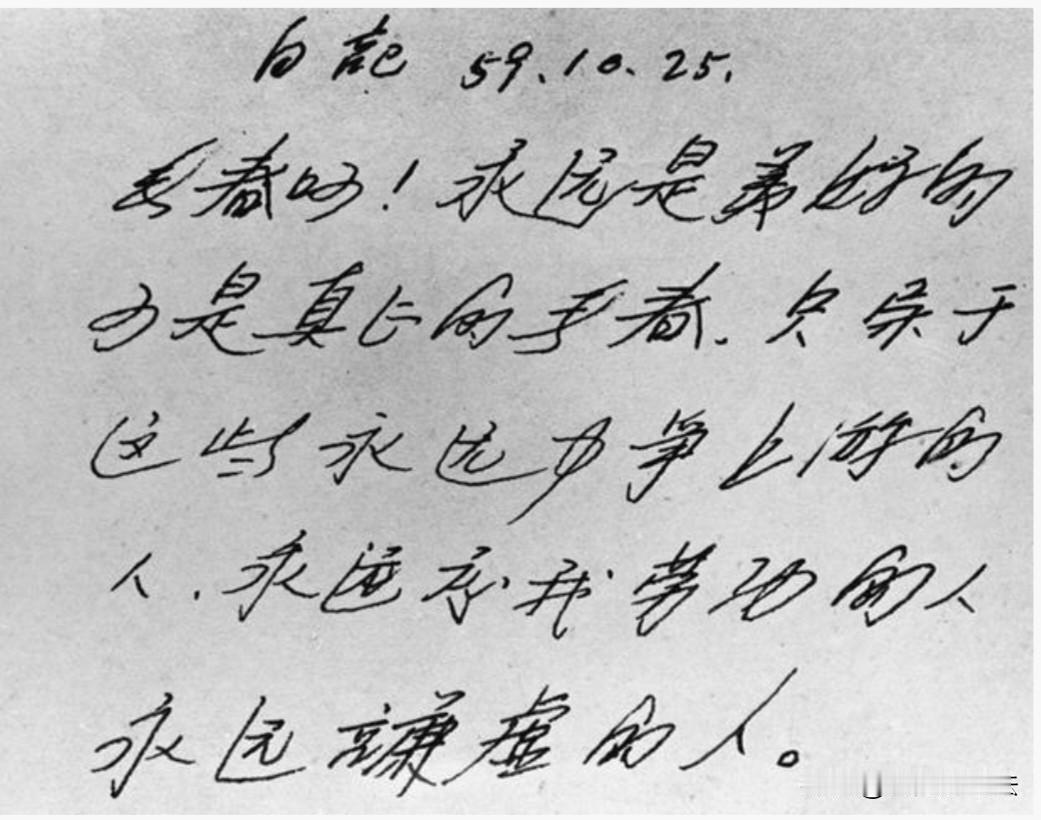 日記 59.10.25.
青春啊！永远是美好的
可是真正的青春．只属于
这些永远力争上游的
人．永远忘我劳动的人
永远謙虚的人。